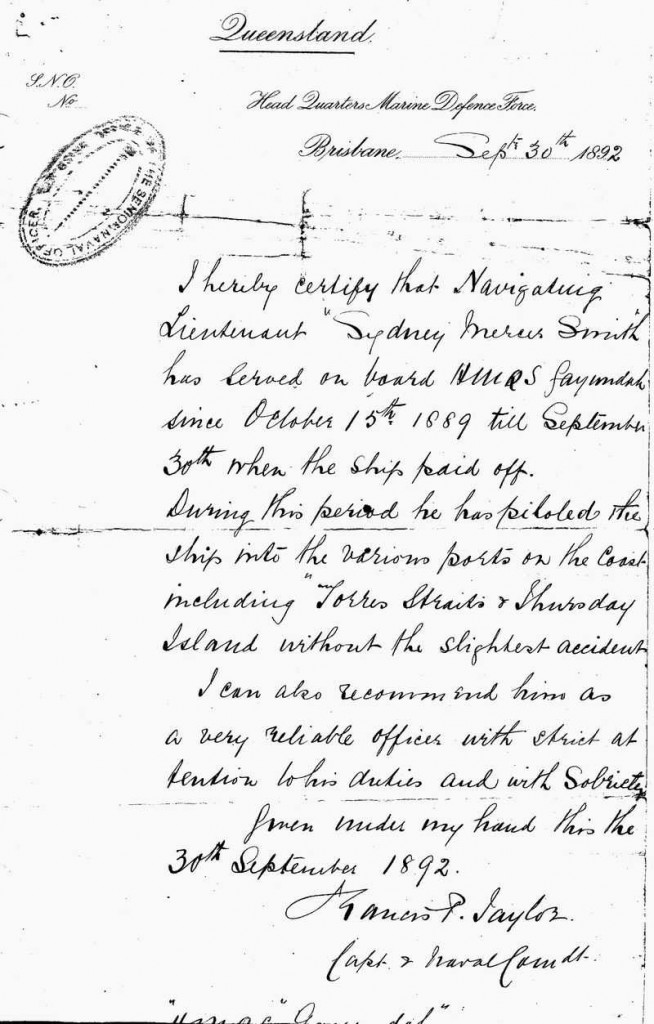 Queensland.
S.N.O.
No
Head Quarters Marine Defence Force.
Brisbane. Septr 30th 1892
OFFICE OF THE SENIOR NAVAL OFFICER.
I hereby certify that Navigating
Lieutenant "Sydney Mercer Smith"
has served on board HMQS Gayundah
since October 15th 1889 till September
30th when the ship paid off.
During this period he has piloted the
ship into the various ports on the Coast
including "Torres Straits & Thursday
Island without the slightest accident
I can also recommend him as
a very reliable officer with strict at
tention to his duties and with Sobriety
Given under my hand this the
30th September 1892.
Francis P. Taylor.
Capt. & Naval Comdt.